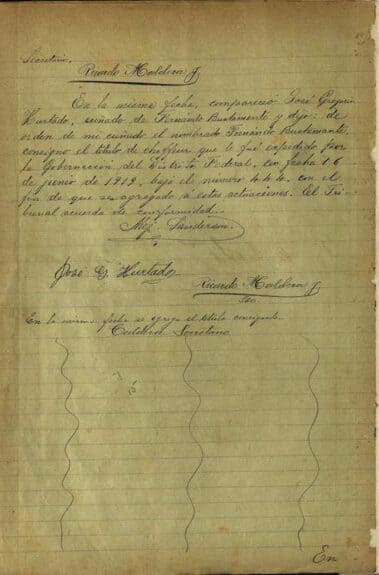 Secretario,
Ricardo Maldera J.
En la misma fecha, compareció José Gregorio
Hurtado, cuñado de Fernando Bustamante y dijo: de
orden de mi cuñado el nombrado Fernando Bustamante,
consigno el título de chauffeur que le fué expedido por
la Gobernación del Distrito Federal, con fecha 16
de junio de 1912, bajo el número 444, con el
fin de que se agregado a estas actuaciones. El Tri-
bunal acuerda de conformidad.
Alej. Sanderson.
José G. Hurtado
Ricardo Maldera J.
Sco.
En la misma fecha se agrega el título consignado.
Secretario
En